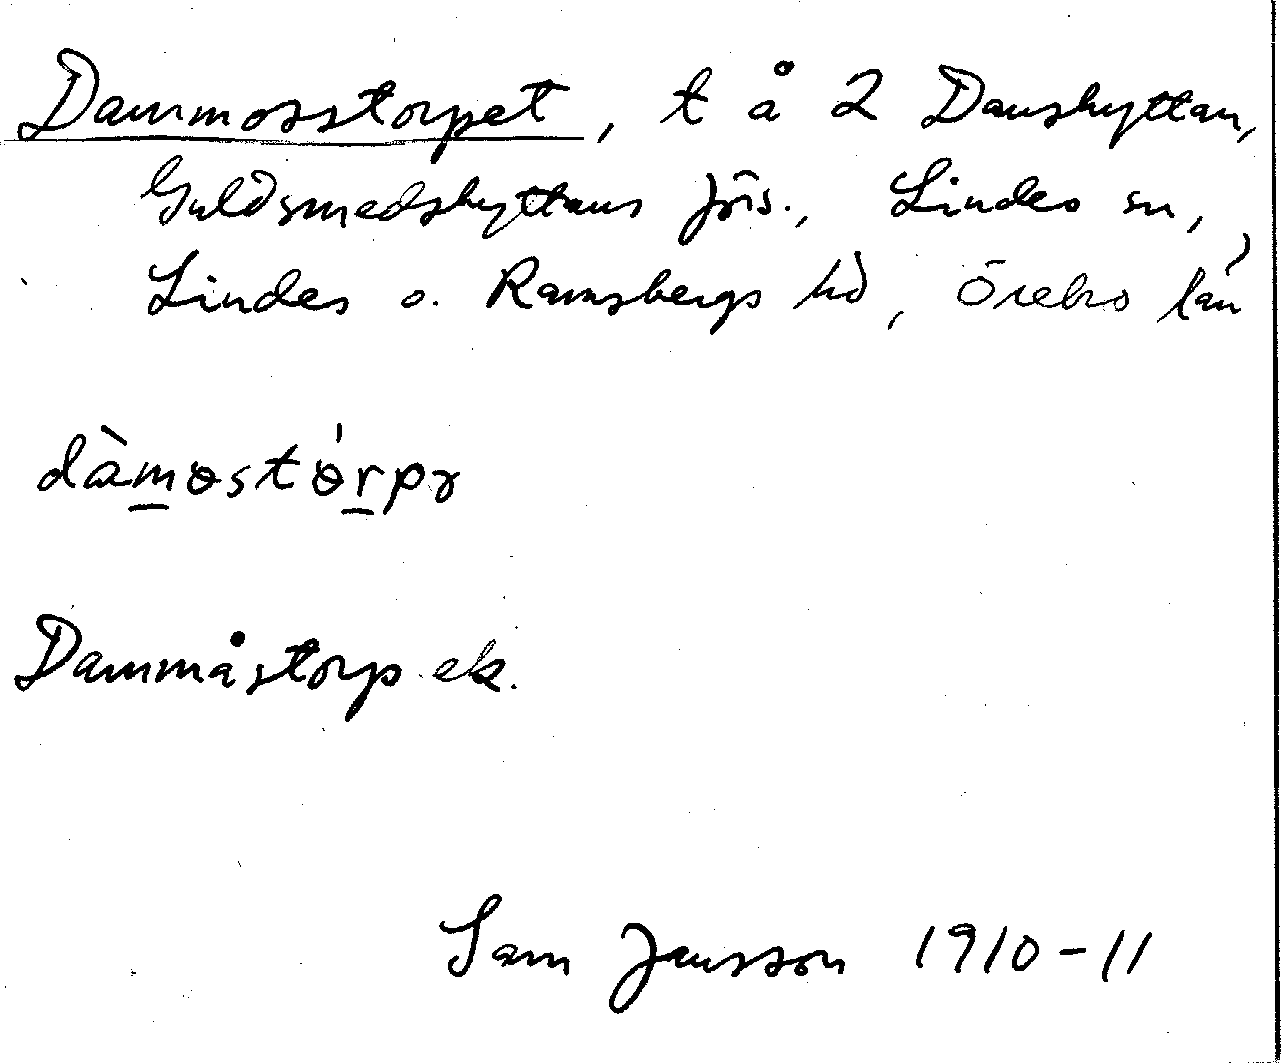 Dammosstorpet, t å 2 Danshyttan,
Guldsmedshyttans jbfs., Lindes sn,
Lindes o. Ramsbergs hd, Örebro län
dàmɵstɵ́rpɤ
Dammåstorp ek.
Sam Jansson 1910-11